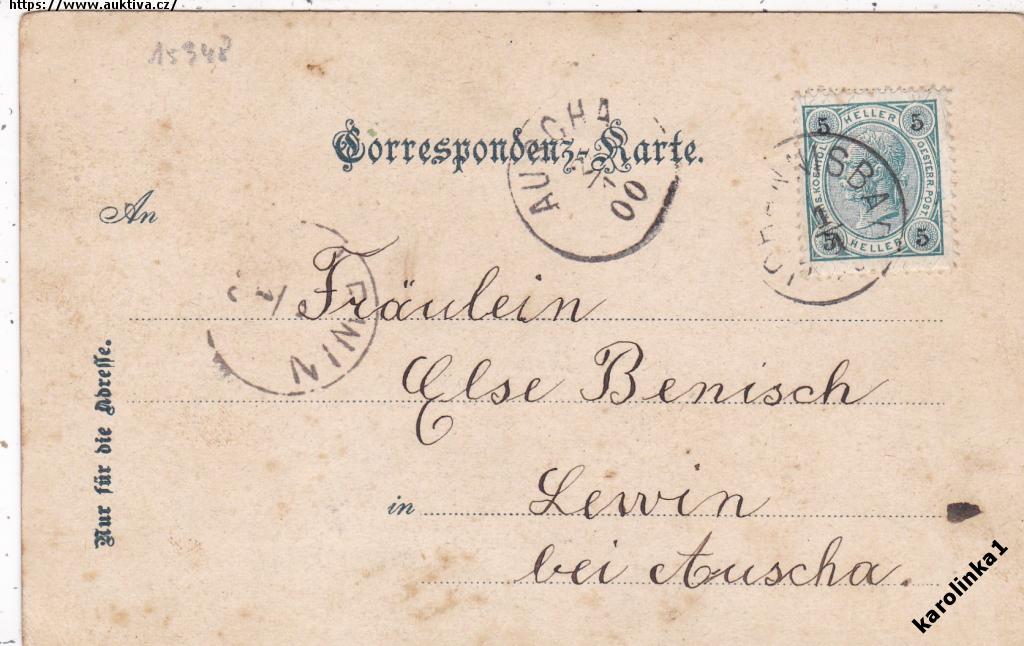 https://www.auktiva.cz/
15348
Correspondenz-Karte.
AUSCHA
00
HELLER
5 5
KAIS. KOENIGL. OESTERR. POST.
5 5
HELLER
An
Fräulein
Else Benisch
in Lewin
bei Auscha.
Nur für die Adresse.
karolinka1